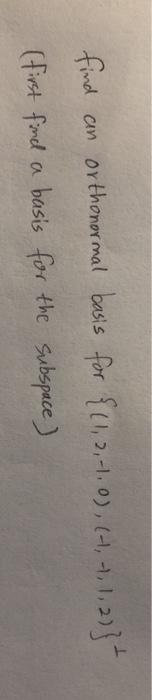 find an orthonormal basis for {(1, 2, -1, 0), (-1, -1, 1, 2)}⊥
(first find a basis for the subspace)